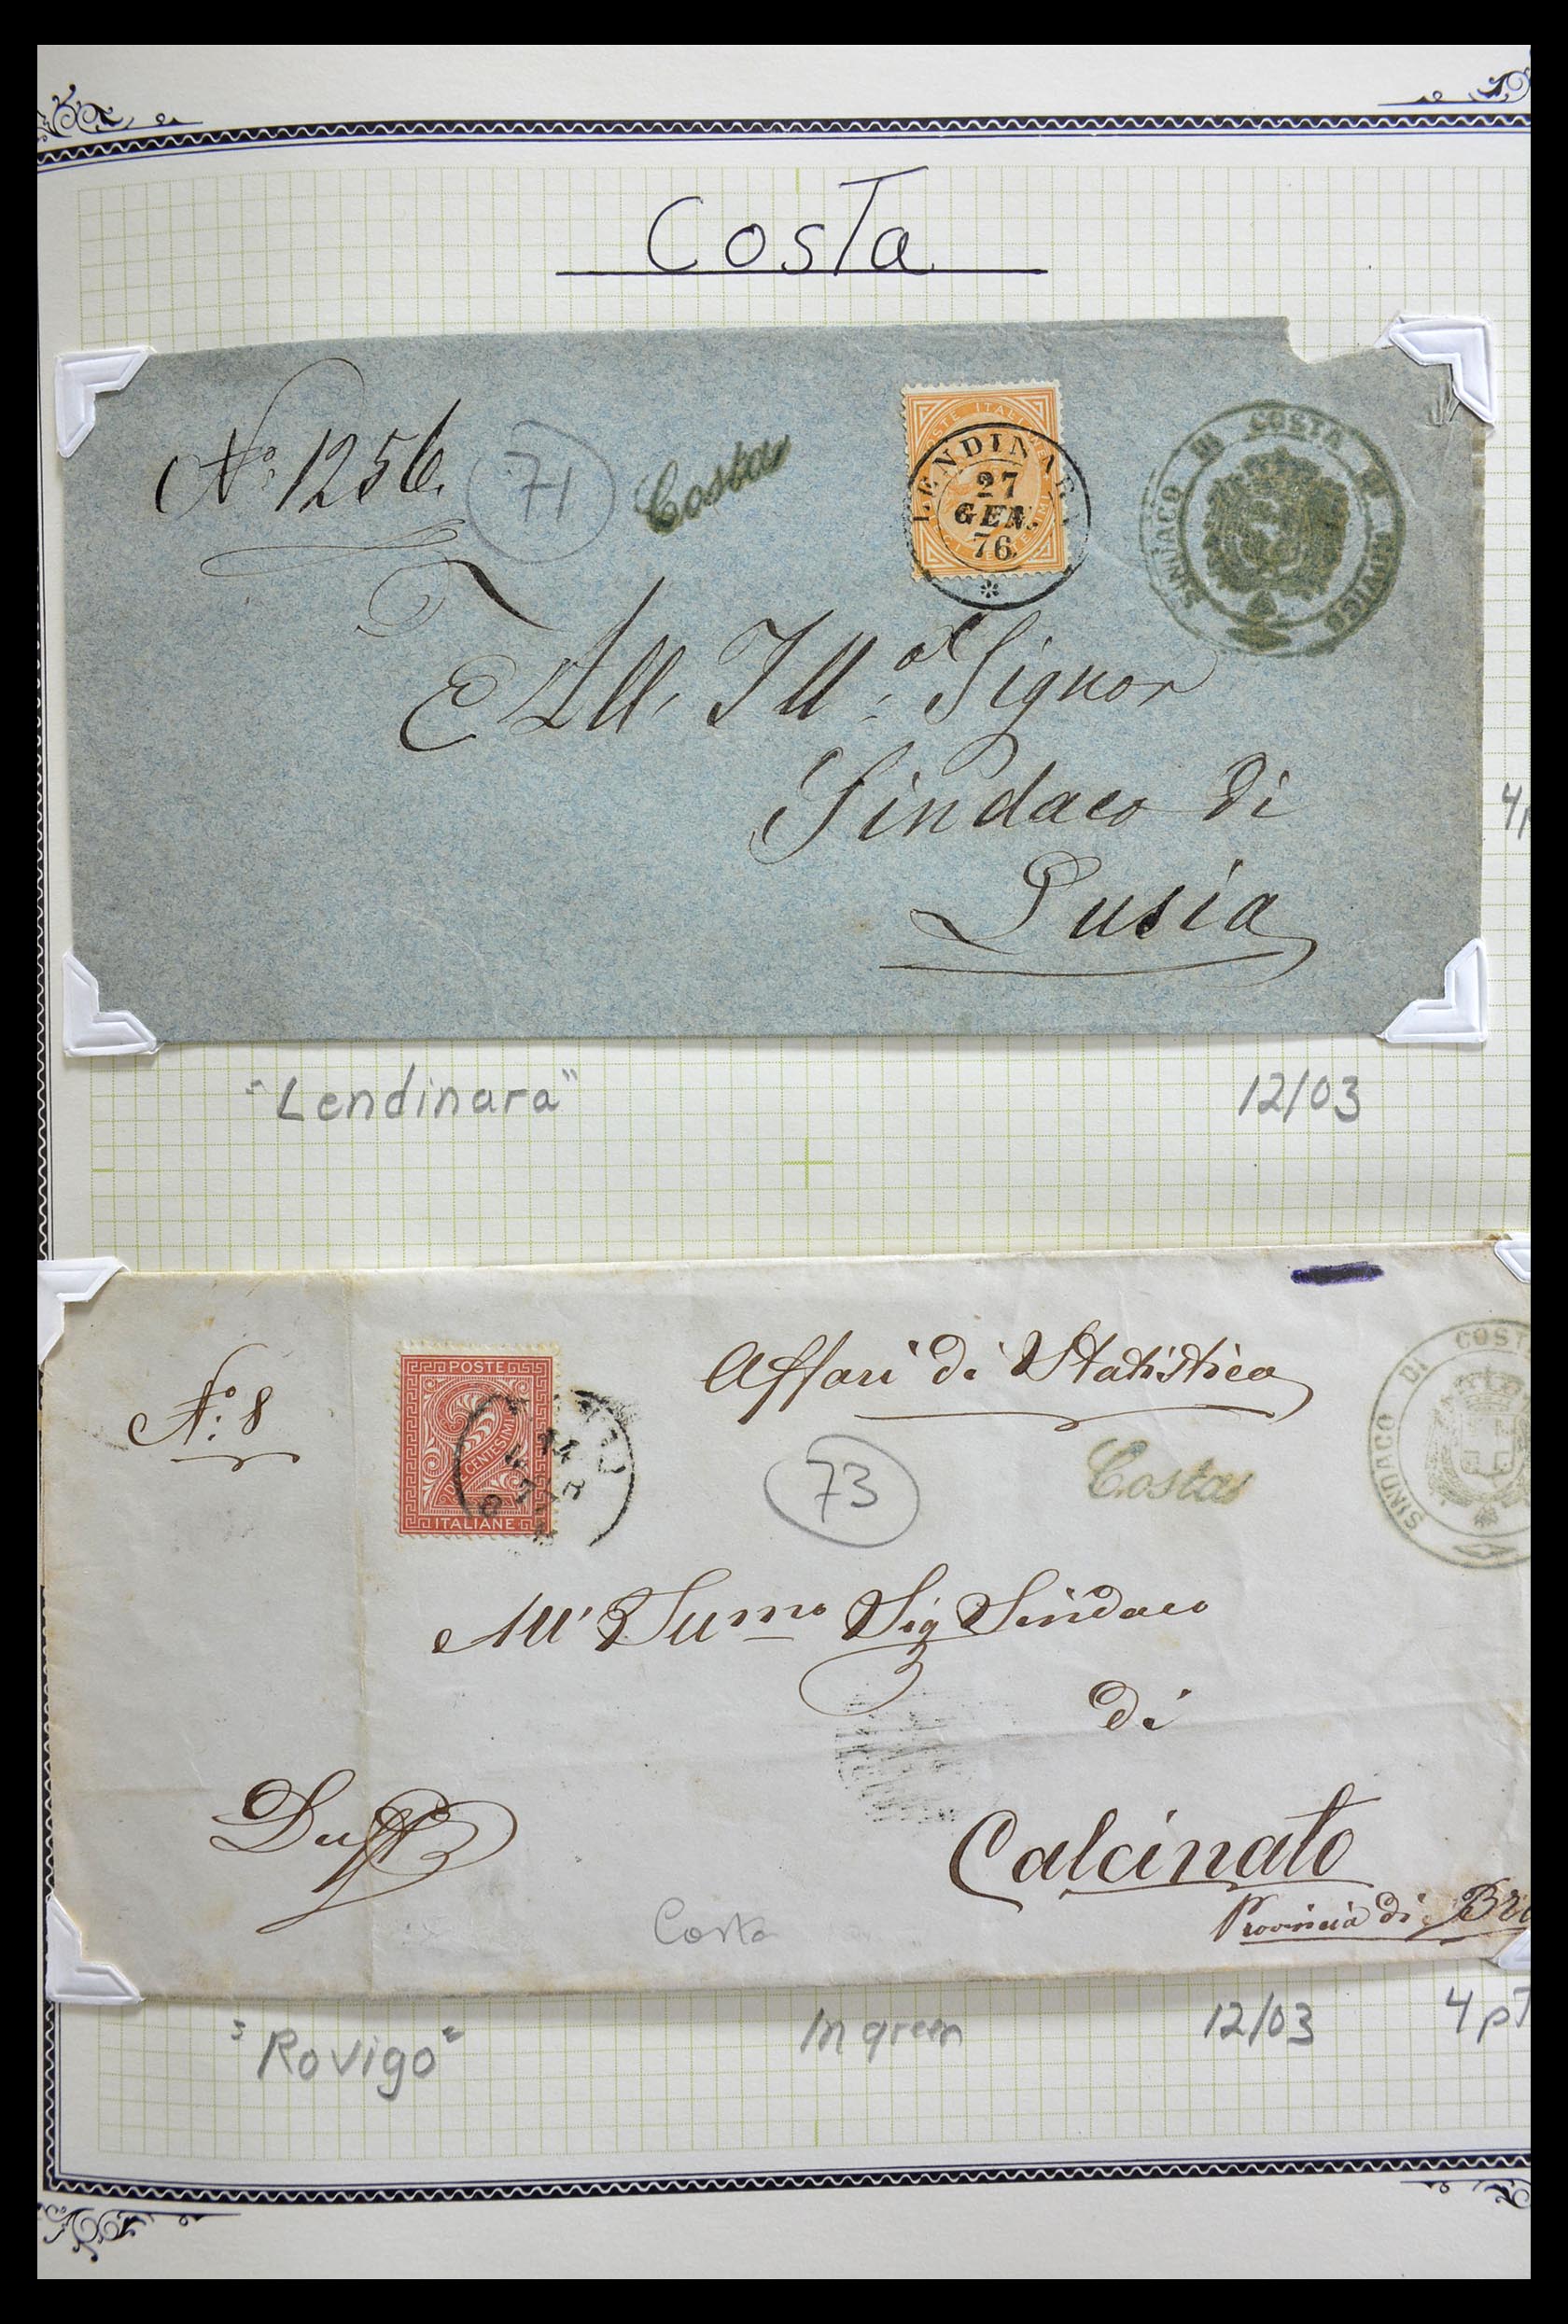 Costa
No. 1256.
71
Costa
LENDINARA
27
GEN.
76
SINDACO DI COSTA DI ROVIGO
All' Ill.o Signor
Sindaco di
Lusia
4p
"Lendinara"
12/03
No. 8
POSTE
2
DUE CENTESIMI
ITALIANE
Affari di Statistica
73
Costa
SINDACO DI COST
Sig Sindaco
di
Calcinato
Provincia di Br
Costa
"Rovigo"
In green
12/03
4 pT